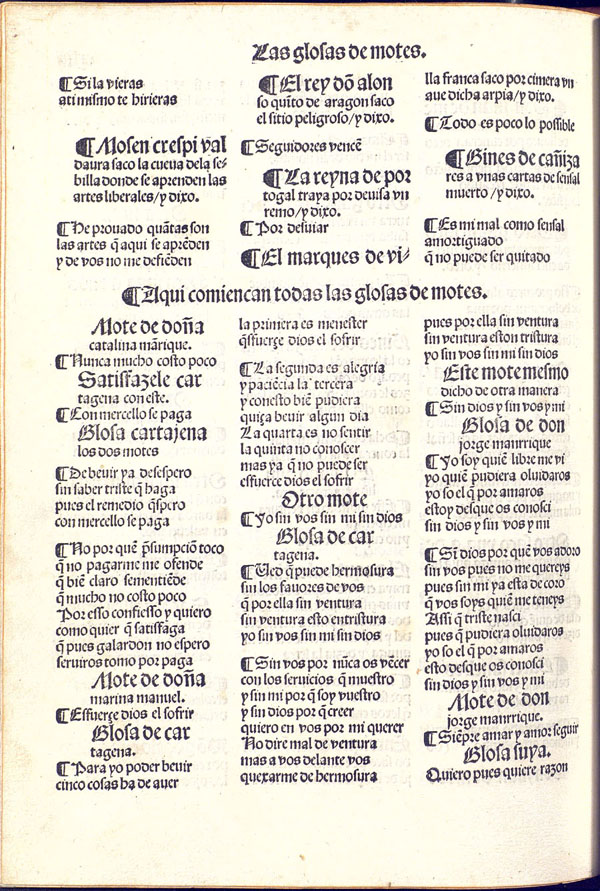 Las glosas de motes.
¶Si la vieras
ati mismo te hirieras
¶Mosen crespi val
daura saco la cueua dela se-
billa donde se aprenden las
artes liberales/y dixo.
¶He prouado quãtas son
las artes q̃ aqui se aprẽden
y de vos no me defiẽden
¶El rey dõ alon
so quĩto de aragon saco
el sitio peligroso/y dixo.
¶Seguidores vencẽ
¶La reyna de por
togal traya por deuisa vn
remo/y dixo.
¶Por desuiar
¶El marques de vi-
lla franca saco por cimera vn
aue dicha arpia/y dixo.
¶Todo es poco lo possible
¶Gines de cañiza
res a vnas cartas de sensal
muerto /y dixo.
¶Es mi mal como sensal
amortiguado
q̃ no puede ser quitado
¶Aqui comiencan todas las glosas de motes.
Mote de doña
catalina mãrique.
¶Nunca mucho costo poco
Satisfazele car
tagena con este.
¶Con mercello se paga
Glosa cartajena
los dos motes
¶De beuir ya desespero
sin saber triste q̃ haga
pues el remedio q̃spero
con mercello se paga
¶No por quẽ p̃sumpciõ toco
q̃no pagarme me ofende
q̃ biẽ claro sementiẽde
q̃ mucho no costo poco
Por esso confiesso y quiero
como quier q̃ satisfaga
q̃ pues galardon no espero
seruiros tomo por paga
Mote de doña
marina manuel.
¶Esfuerçe dios el sofrir
Glosa de car
tagena.
¶Para yo poder beuir
cinco cosas ha de auer
la primera es menester
q̃sfuerçe dios el sofrir
¶La segunda es alegria
y paciẽcia la tercera
y conesto biẽ pudiera
quiça beuir algun dia
La quarta es no sentir
la quinta no conoscer
mas ya q̃ no puede ser
esfuerce dios el sofrir
Otro mote
¶Yo sin vos sin mi sin dios
Glosa de car
tagena.
¶Ued q̃ puede hermosura
sin los fauores de vos
q̃ por ella sin ventura
sin ventura esto entristura
yo sin vos sin mi sin dios
¶Sin vos por nũca os vẽcer
con los seruicios q̃ muestro
y sin mi por q̃ soy vuestro
y sin dios por q̃ creer
quiero en vos por mi querer
No dire mal de ventura
mas a vos delante vos
quexarme de hermosura
pues por ella sin ventura
sin ventura eston tristura
yo sin vos sin mi sin dios
Este mote mesmo
dicho de otra manera
¶Sin dios y sin vos y mi
Glosa de don
jorge manrrique
¶Yo soy quiẽ libre me vi
yo quiẽ pudiera oluidaros
yo so el q̃ por amaros
estoy desque os conosci
sin dios y sin vos y mi
¶Sĩ dios por quẽ vos adoro
sin vos pues no me quereys
pues sin mi ya esta de coro
q̃ vos soys quiẽ me teneys
Assi q̃ triste nasci
pues q̃ pudiera oluidaros
yo so el q̃ por amaros
esto desque os conosci
sin dios y sin vos y mi
Mote de don
jorge manrrique.
¶Siẽpre amar y amor seguir
Glosa suya.
Quiero pues quiere razon